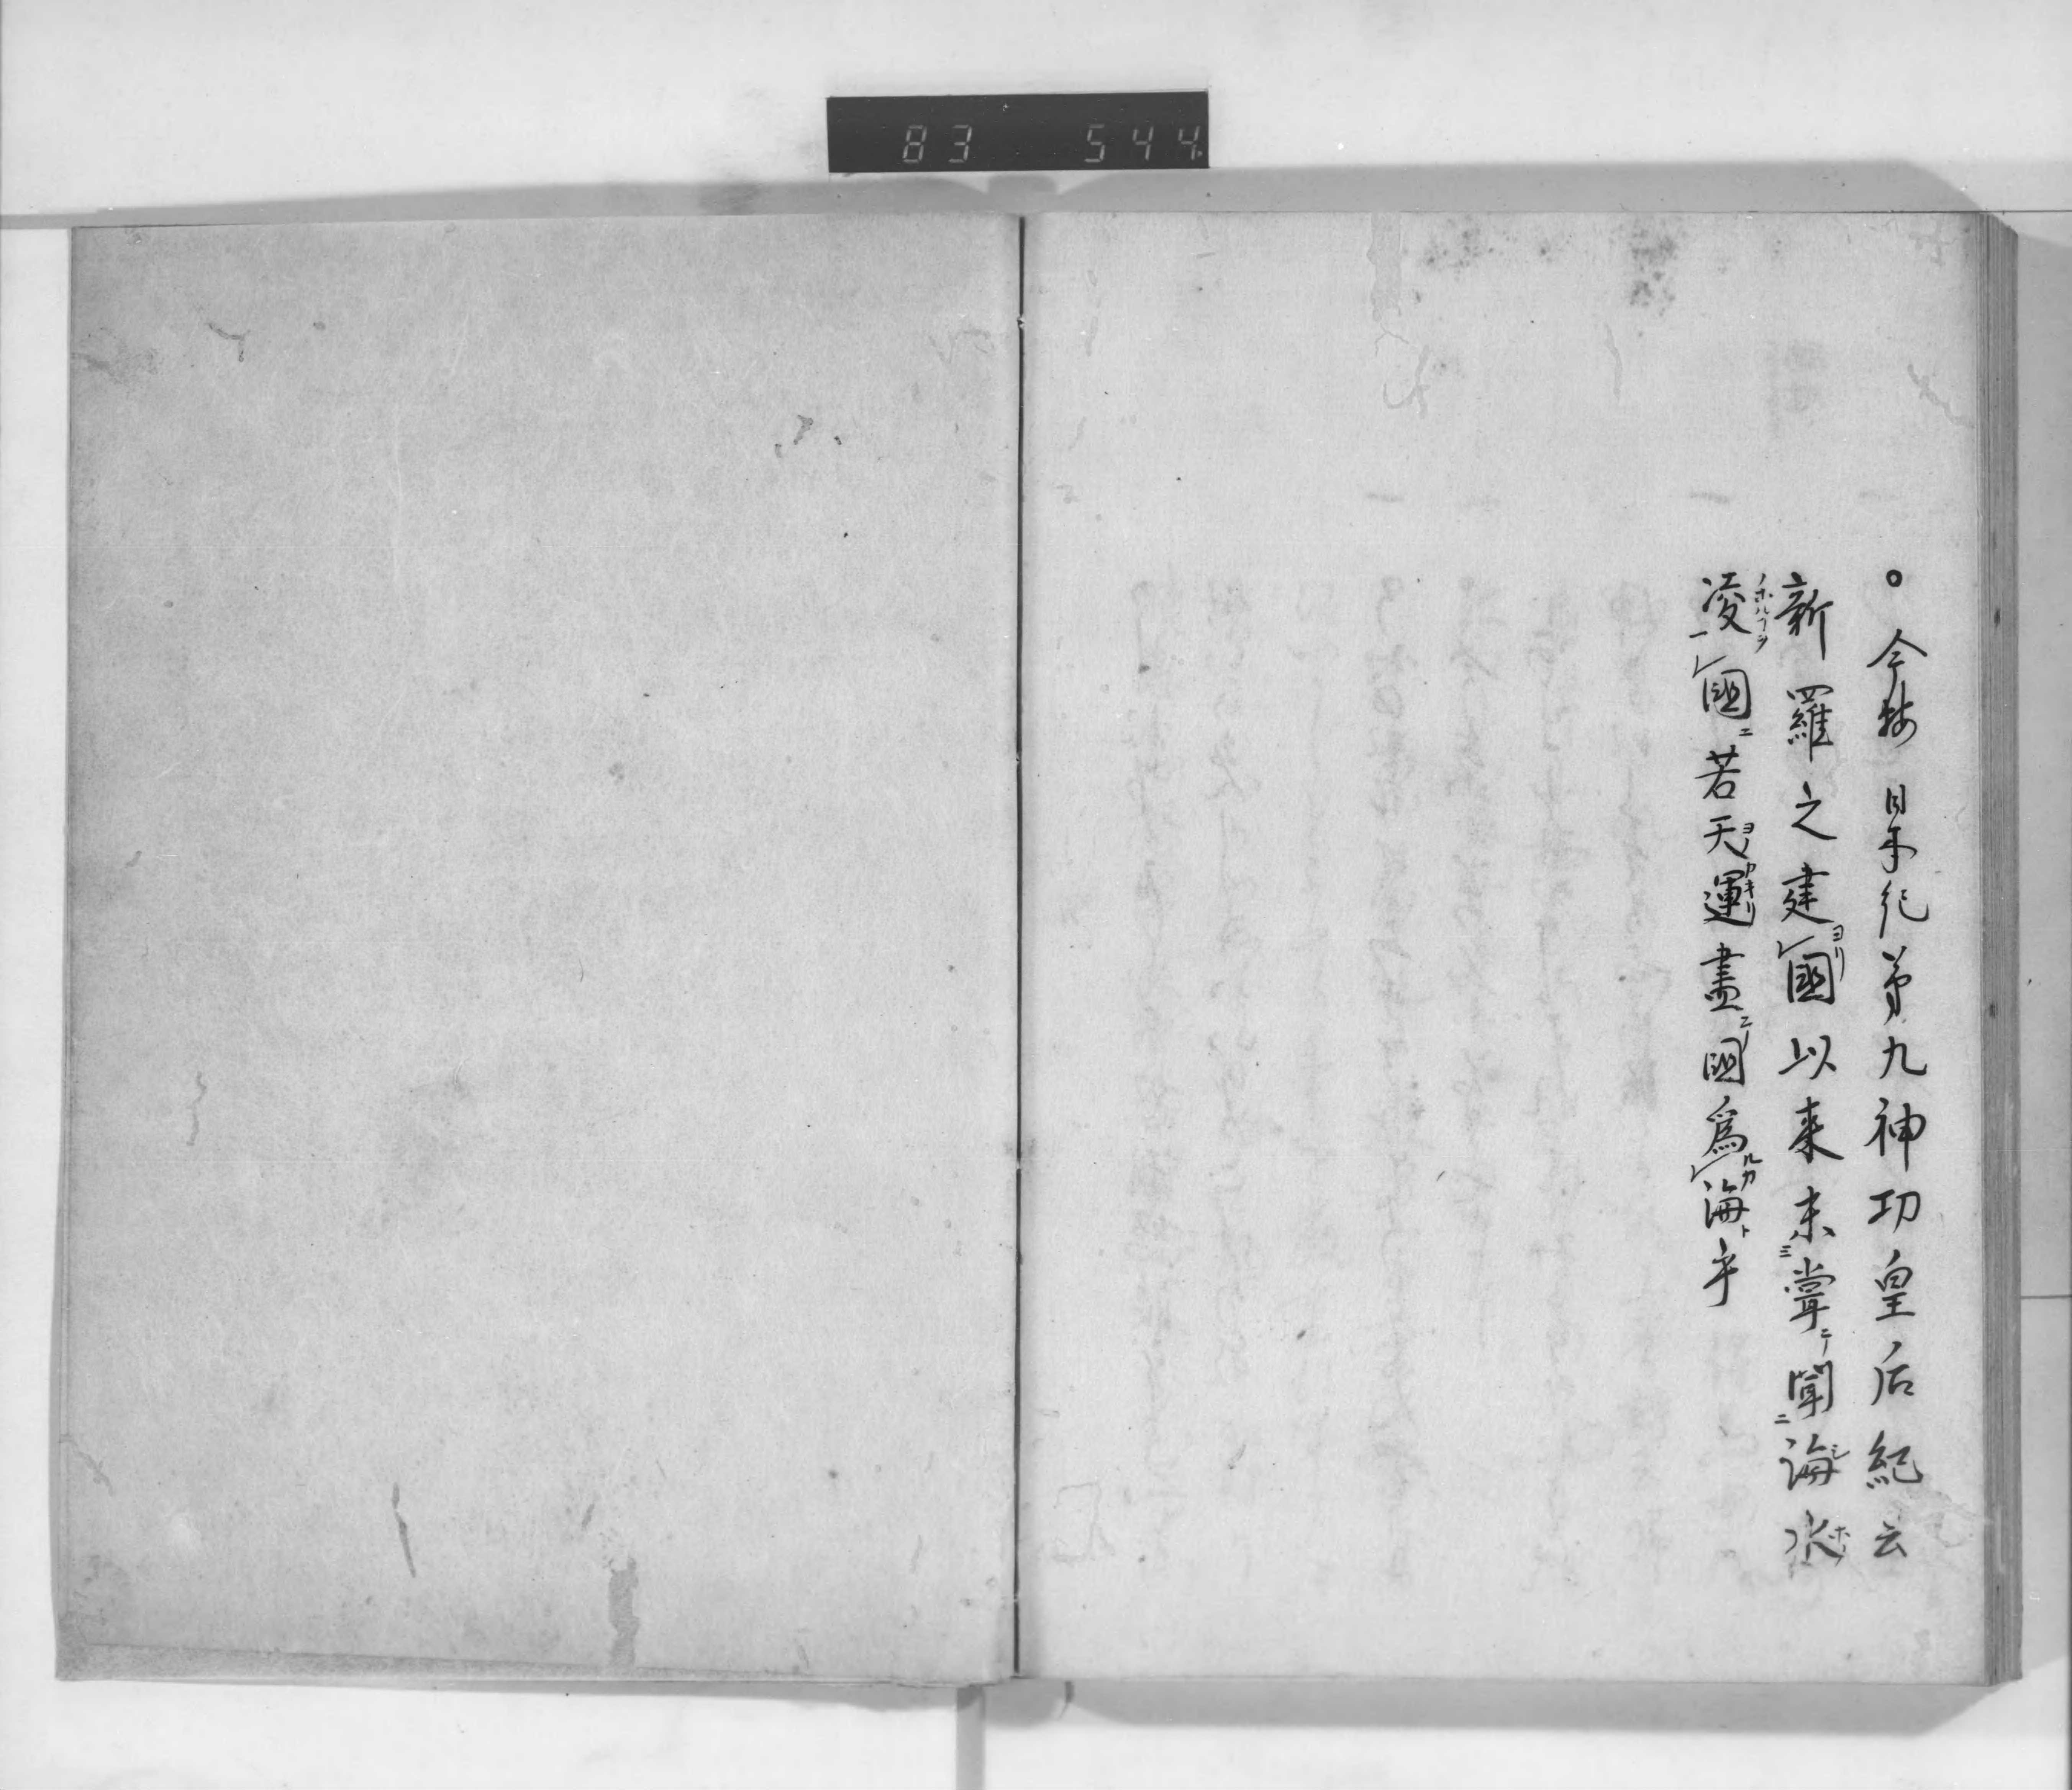 83 544
○今按日本紀第九神功皇后紀云
新羅之建國以来未嘗聞海水
凌國若天運盡國為海乎